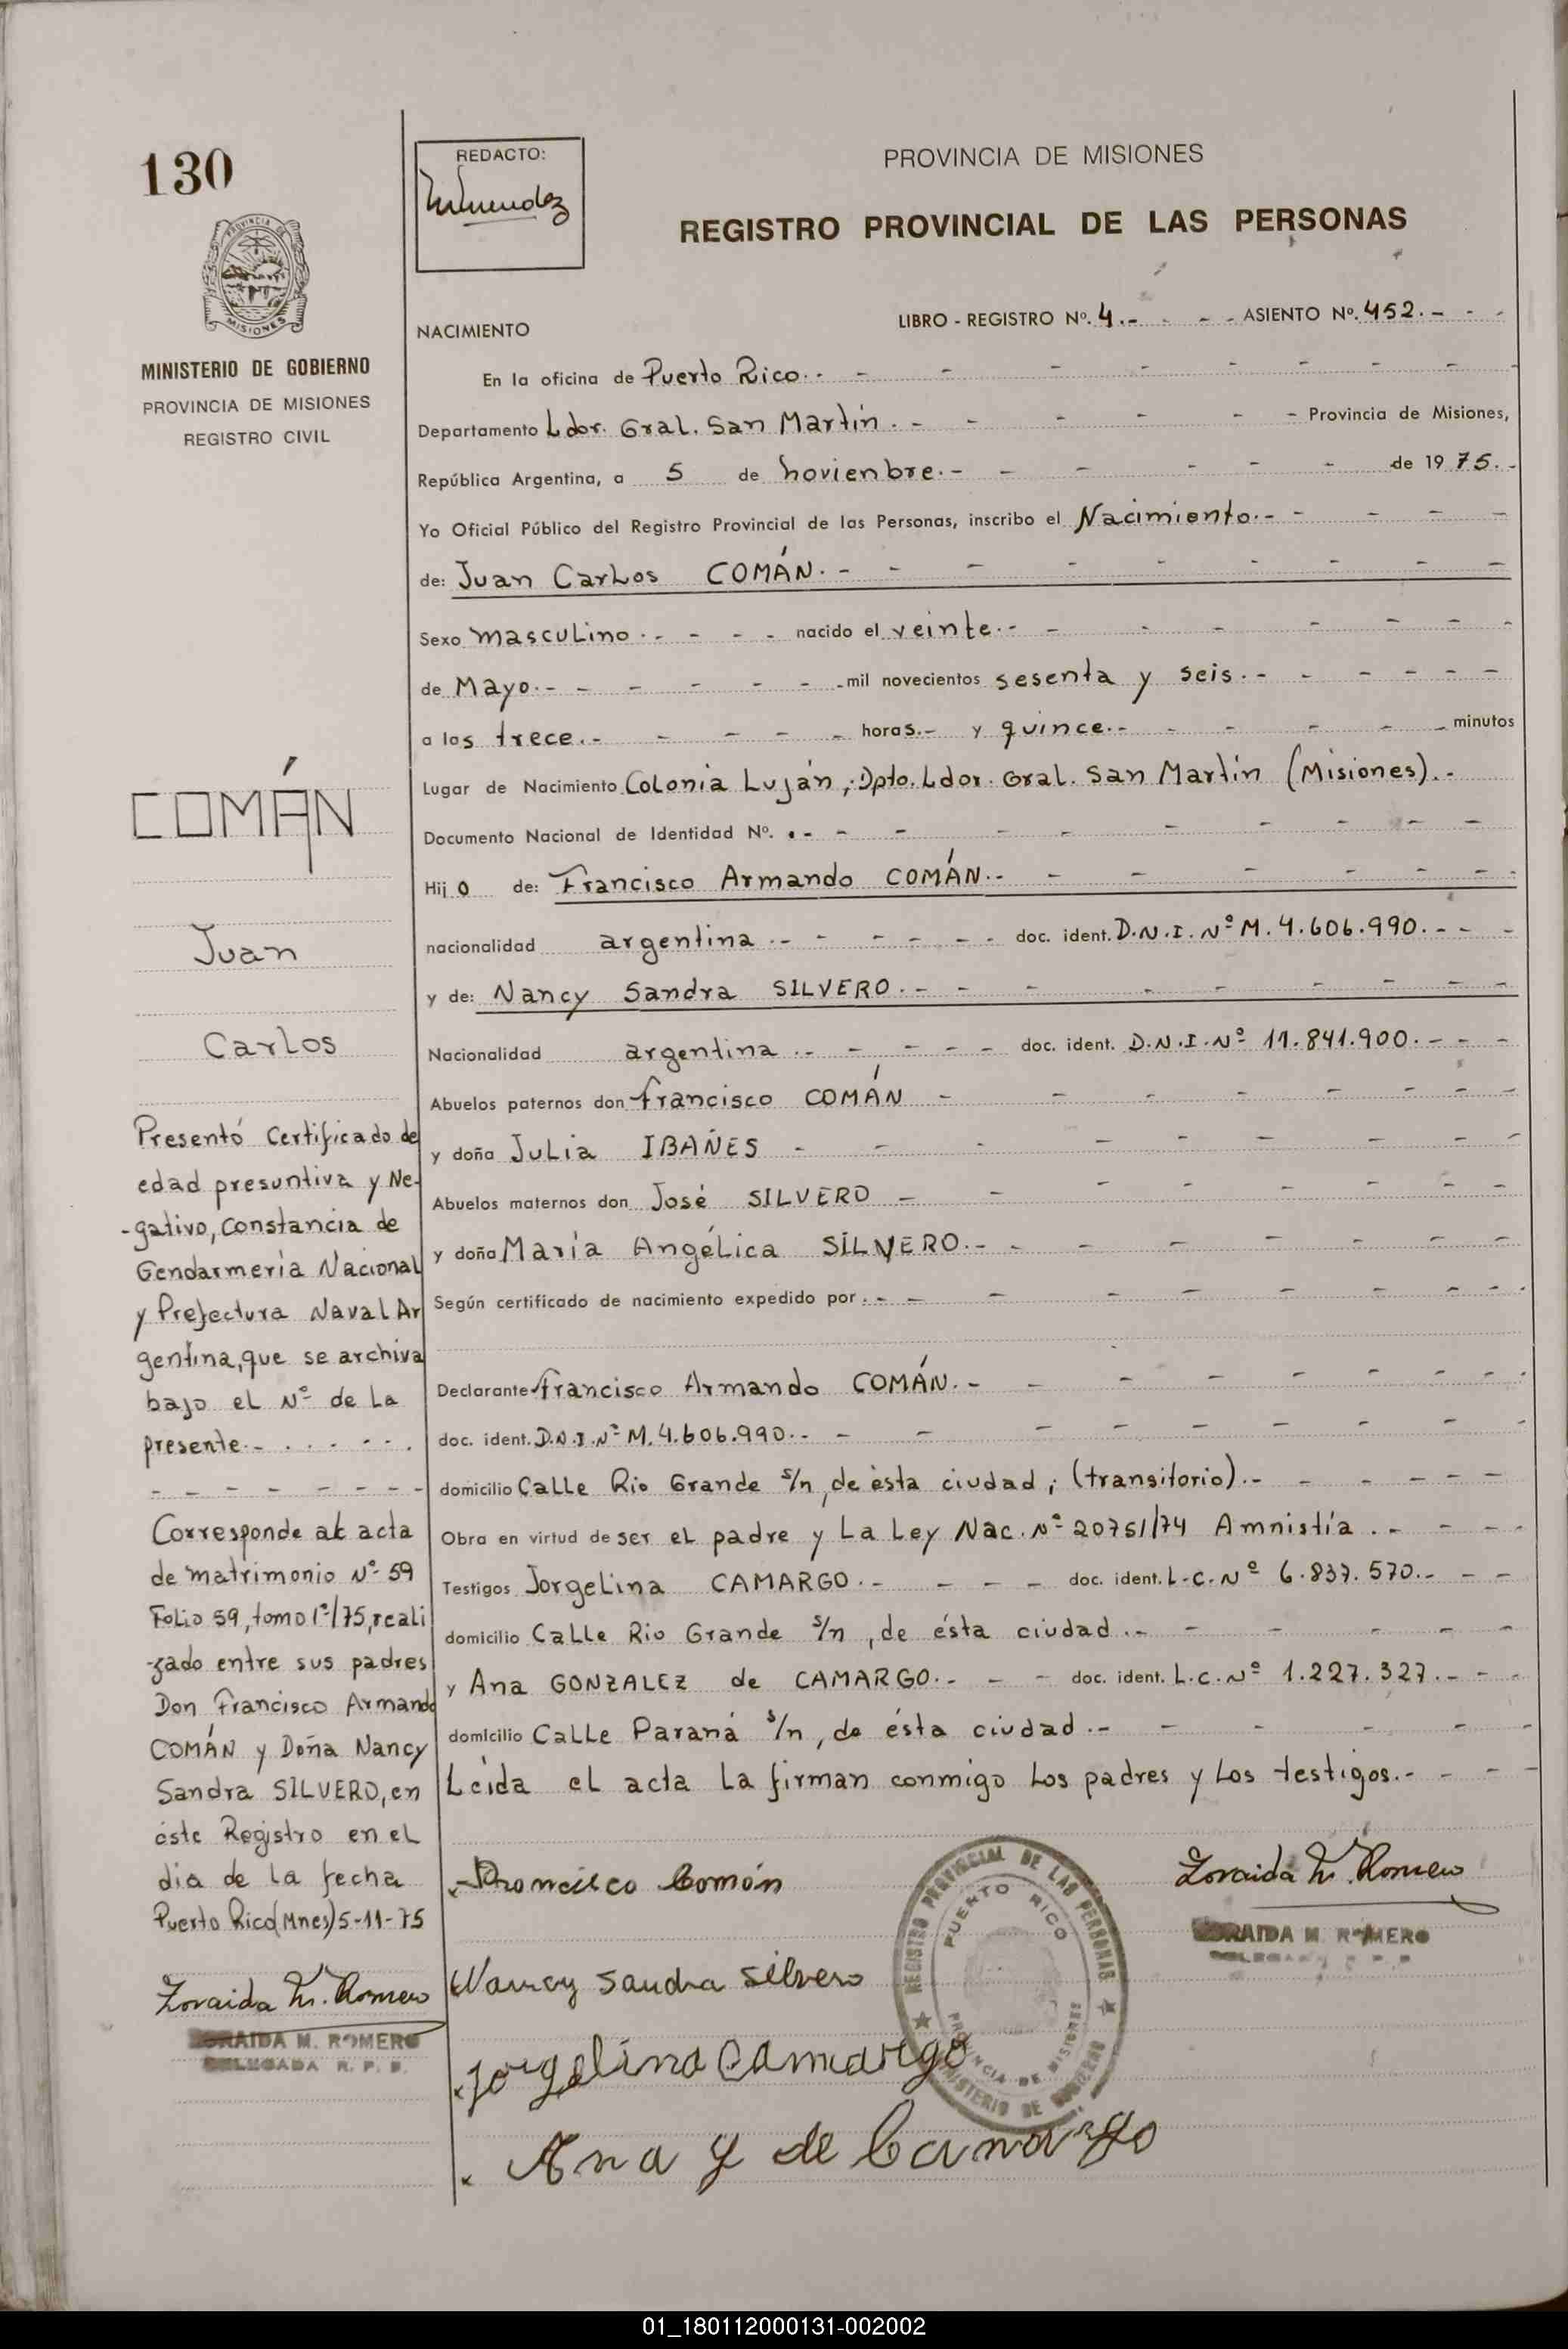 130
REDACTO:
PROVINCIA DE MISIONES
REGISTRO PROVINCIAL DE LAS PERSONAS
PROVINCIA DE
MISIONES
MINISTERIO DE GOBIERNO
PROVINCIA DE MISIONES
REGISTRO CIVIL
NACIMIENTO
LIBRO - REGISTRO Nº. 4.- - - - ASIENTO Nº. 452.- - -
En la oficina de Puerto Rico.-
Departamento Ldor. Gral. San Martín.- Provincia de Misiones,
República Argentina, a 5 de novienbre.- de 1975.-
Yo Oficial Público del Registro Provincial de las Personas, inscribo el Nacimiento.-
de: Juan Carlos COMÁN.-
Sexo masculino.- nacido el veinte.-
de Mayo.- mil novecientos sesenta y seis.-
a las trece.- horas.- y quince.- minutos
Lugar de Nacimiento Colonia Luján, Dpto. Ldor. Gral. San Martín (Misiones).-
Documento Nacional de Identidad Nº. .-
Hijo de: Francisco Armando COMÁN.-
nacionalidad argentina.- doc. ident. D.N.I. Nº M. 4.606.990.-
y de: Nancy Sandra SILVERO.-
Nacionalidad argentina.- doc. ident. D.N.I. Nº 11.841.900.-
Abuelos paternos don Francisco COMÁN -
y doña Julia IBAÑES -
Abuelos maternos don José SILVERO -
y doña María Angélica SILVERO.-
Según certificado de nacimiento expedido por .-
Declarante Francisco Armando COMÁN.-
doc. ident. D.N.I. Nº M. 4.606.990.-
domicilio Calle Rio Grande s/n, de ésta ciudad; (transitorio).-
Obra en virtud de ser el padre y La Ley Nac. Nº 20751/74 Amnistía.-
Testigos Jorgelina CAMARGO.- doc. ident. L.C. Nº 6.837.570.-
domicilio Calle Rio Grande s/n, de ésta ciudad.-
y Ana GONZALEZ de CAMARGO.- doc. ident. L.C. Nº 1.227.327.-
domicilio Calle Paraná s/n, de ésta ciudad.-
Leida el acta la firman conmigo los padres y los testigos.-
COMÁN
Juan
Carlos
Presentó Certificado de
edad presuntiva y Ne-
-gativo, constancia de
Gendarmería Nacional
y Prefectura Naval Ar
gentina, que se archiva
bajo el Nº de la
presente.-
Corresponde al acta
de matrimonio Nº 59
Folio 59, tomo 1º/75, reali
-zado entre sus padres
Don Francisco Armando
COMÁN y Doña Nancy
Sandra SILVERO, en
éste Registro en el
dia de la fecha
Puerto Rico(Mnes)5-11-75
Zoraida M. Romero
ZORAIDA M. ROMERO
DELEGADA R. P. P.
Francisco Comán
Nancy Sandra Silvero
Jorgelina Camargo
Ana y de Camargo
REGISTRO PROVINCIAL DE LAS PERSONAS
PUERTO RICO
PROVINCIA DE MISIONES
MINISTERIO DE GOBIERNO
Zoraida M. Romero
ZORAIDA M. ROMERO
DELEGADA R. P. P.
01_180112000131-002002